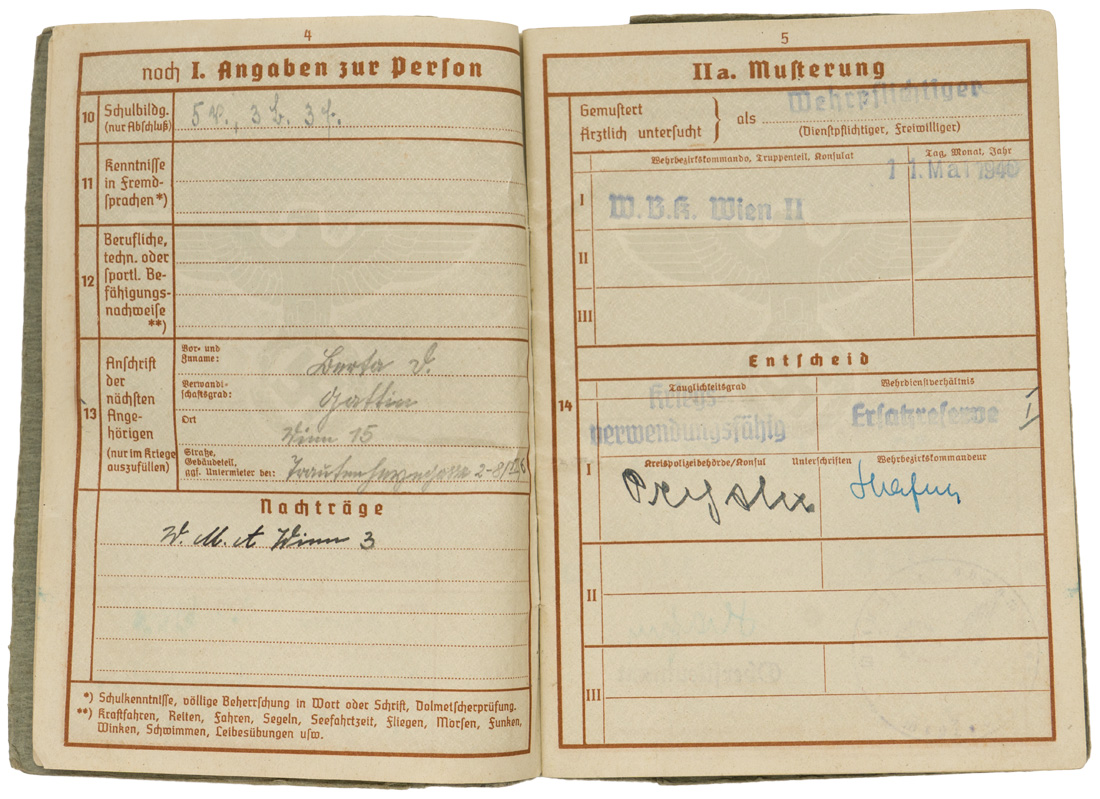 4
noch I. Angaben zur Person
10
Schulbildg.
(nur Abschluß)
5 V., 3 b. 3 f.
11
Kenntnisse
in Fremd-
sprachen*)
12
Berufliche,
techn. oder
sportl. Be-
fähigungs-
nachweise
**)
13
Anschrift
der
nächsten
Ange-
hörigen
(nur im Kriege
auszufüllen)
Vor- und
Zuname:
Berta V.
Verwandt-
schaftsgrad:
Gattin
Ort
Wien 15
Straße,
Gebäudeteil,
ggf. Untermieter bei:
2-8/
Nachträge
W. M. A Wien 3
*) Schulkenntnisse, völlige Beherrschung in Wort oder Schrift, Dolmetscherprüfung.
**) Kraftfahren, Reiten, Fahren, Segeln, Seefahrtzeit, Fliegen, Morsen, Funken,
Winken, Schwimmen, Leibesübungen usw.
5
IIa. Musterung
Gemustert
Ärztlich untersucht
als
Wehrpflichtiger
(Dienstpflichtiger, Freiwilliger)
Wehrbezirkskommando, Truppenteil, Konsulat
Tag, Monat, Jahr
I
W.B.K. Wien II
1 1. Mai 1940
II
III
Entscheid
14
Tauglichkeitsgrad
Wehrdienstverhältnis
Kriegs-
verwendungsfähig
Ersatzreserve I
I
Kreispolizeibehörde/Konsul
Unterschriften
Wehrbezirkskommandeur
II
III